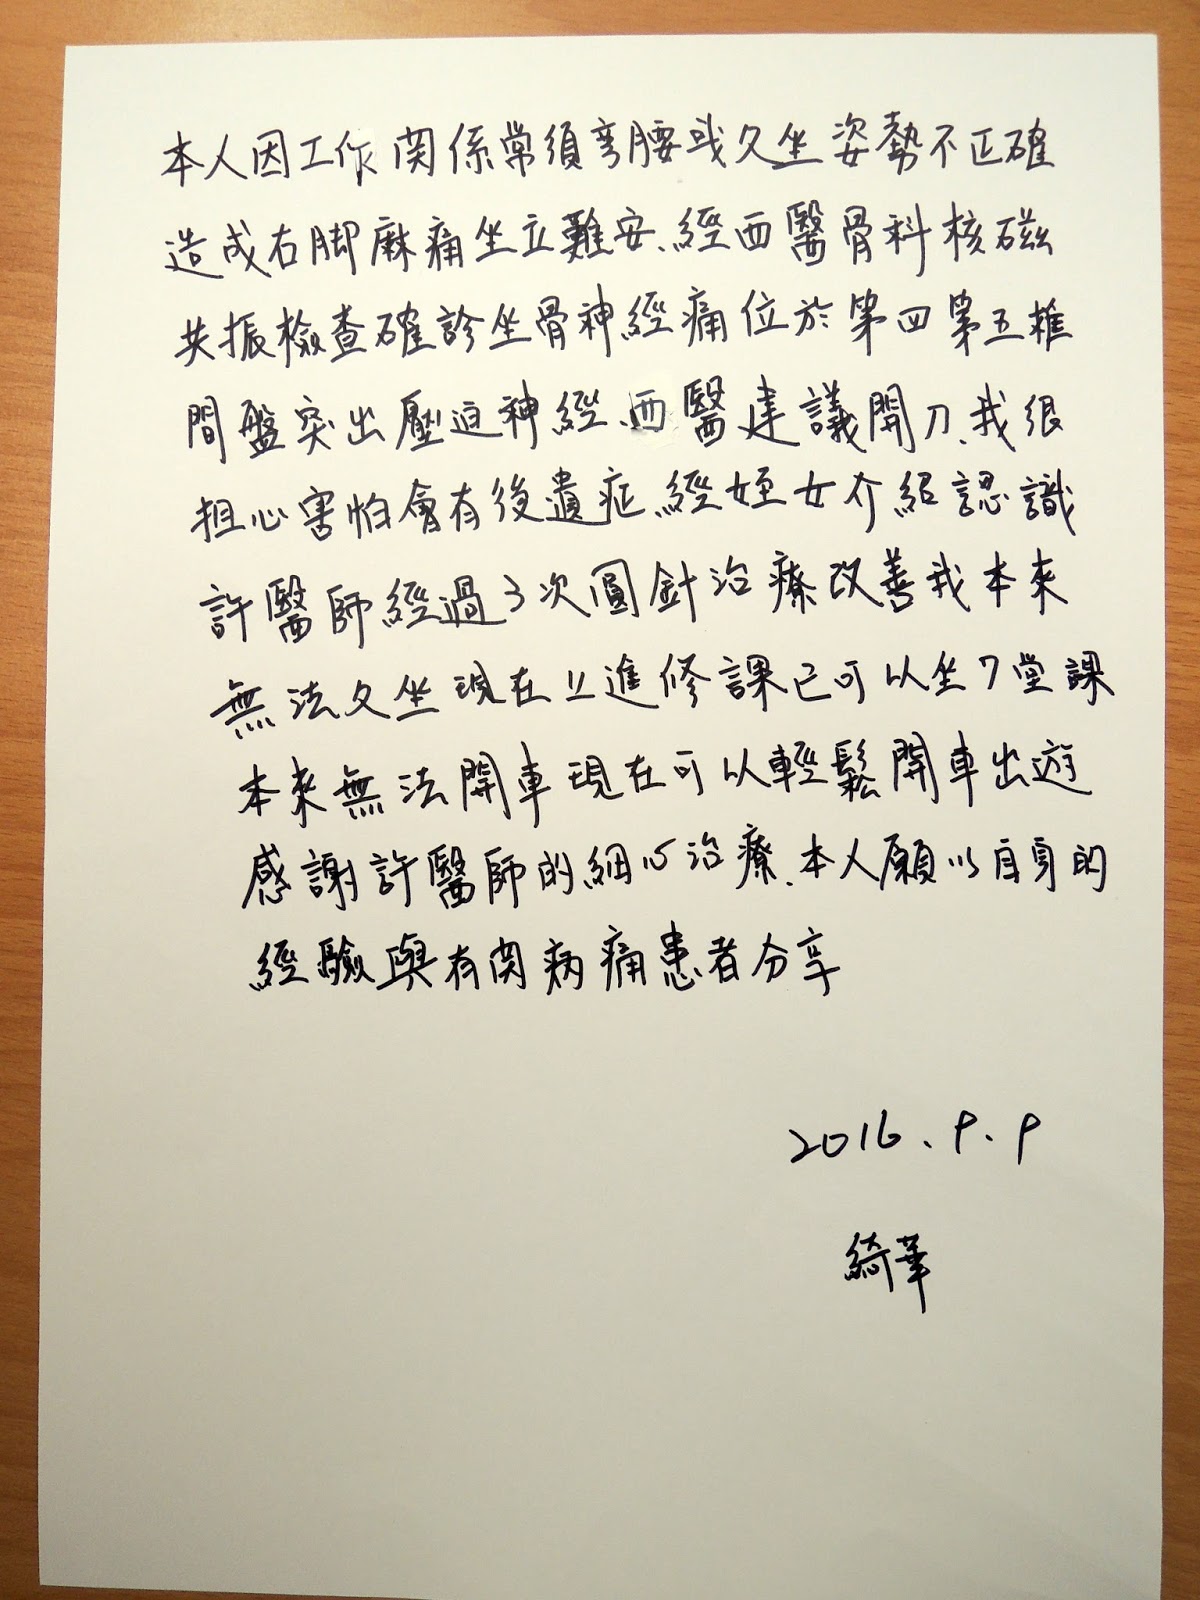 本人因工作関係常須弯腰或久坐姿勢不正確
造成右脚麻痛坐立難安、經西醫骨科核磁
共振檢查確診坐骨神經痛位於第四第五椎
間盤突出壓迫神經、西醫建議開刀、我很
担心害怕會有後遺症、經姪女介紹認識
許醫師經過3次圓針治療改善我本來
無法久坐現在上進修課已可以坐7堂課
本來無法開車現在可以輕鬆開車出遊
感謝許醫師的細心治療、本人願以自身的
經驗與有関病痛患者分享
2016.9.9
綺華